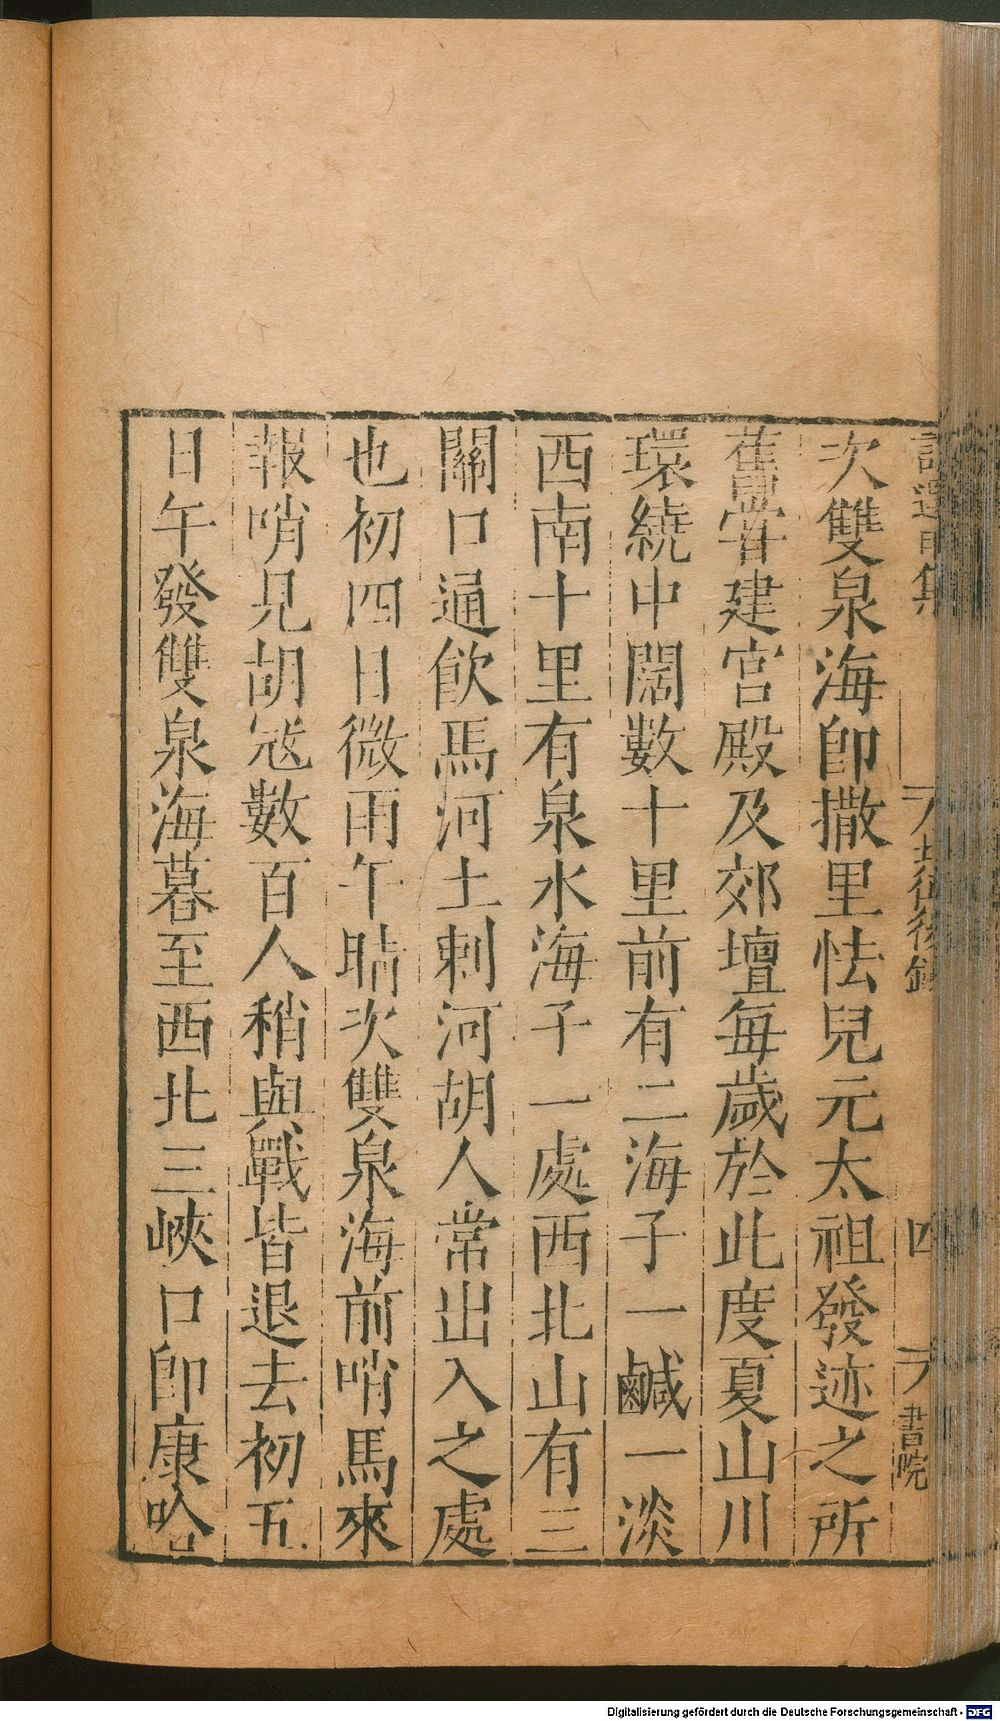 次雙泉海卽撒里怯兒元太祖發迹之所
舊嘗建宮殿及郊壇每歲於此度夏山川
環繞中闊數十里前有二海子一鹹一淡
西南十里有泉水海子一處西北山有三
關口通飲馬河土剌河胡人常出入之處
也初四日微雨午晴次雙泉海前哨馬來
報哨見胡寇數百人稍與戰皆退去初五
日午發雙泉海暮至西北三峽口卽康
四
書院
Digitalisierung gefördert durch die Deutsche Forschungsgemeinschaft - DFG